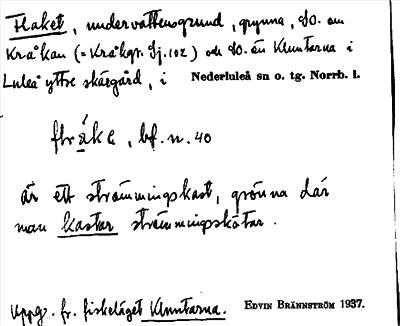 Flaket, undervattensgrund, grynna, SO. om
Kråkan (= Kråkgr. Sj. 102) och SO. om Klnntarna i
Luleå yttre skärgård, i Nederluleå sn o. tg. Norrb. l.
flɑ̀kɛ, bf. n. 40
är ett strömmingskast, grynna där
man kastar strömmingskötar.
Uppg. fr. fiskeläget Klnntarna. EDVIN BRÄNNSTRÖM 1937.